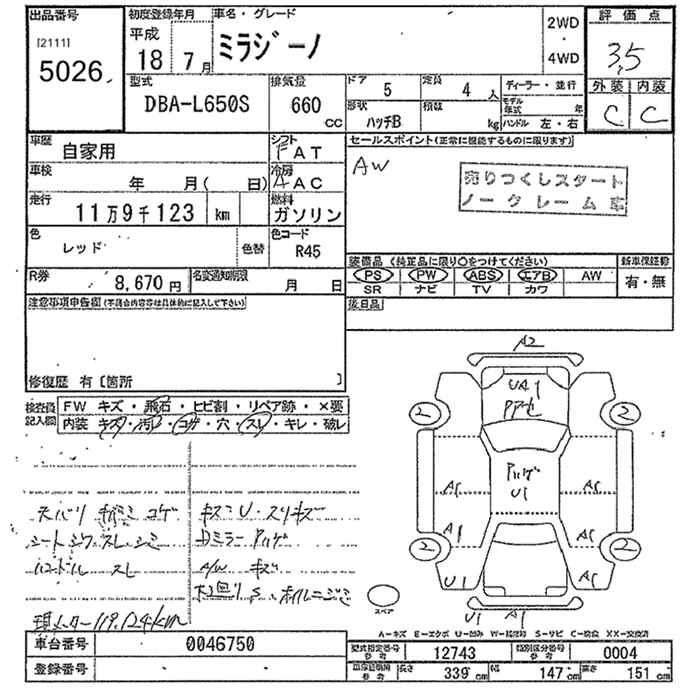 出品番号
[2111]
5026
初度登録年月
平成
18年 7月
車名・グレード
ミラジーノ
2WD
・
4WD
評価点
3.5
外装 内装
C C
型式
DBA-L650S
排気量
660
CC
ドア 5
形状 ハッチB
定員 4 人
積載 kg
ディーラー・並行
モデル年式 年
ハンドル 左・右
車歴
自家用
シフト
FAT
車検
年 月( 日)
冷房
AAC
走行
11万9千123 km
燃料
ガソリン
色
レッド
色替
色コード
R45
R券
8,670円
名変通知期限
月 日
セールスポイント(正常に機能するものに限ります)
AW
売りつくしスタート
ノークレーム車
装備品 (純正品に限り○をつけてください)
PS PW ABS エアB AW
SR ナビ TV カワ
新車保証書
有・無
後日品
注意事項申告欄(不具合内容等は具体的に記入して下さい)
修復歴 有〔箇所 〕
検査員記入欄
FW キズ・飛石・ヒビ割・リペア跡・×要
内装 キズ・汚れ・コゲ・穴・スレ・キレ・破レ
天バリ キバミ コゲ
シートシワ・スレ・シミ
ハンドル スレ
現メーター119,124km
キズミU・スリキズ
Dミラー Pハゲ
A/W キズ
下回りS・ホイルニジミ
A2
UA1
Pアセ
2 2
Pハゲ
U1
A1 A1
A1 A1
2 2
U1 A1
スペア
U1 A1
A－キズ E－エクボ U－凹み W－補修跡 S－サビ C－腐食 XX－交換済
車台番号
0046750
登録番号
型式指定番号 参考
12743
類別区分番号 参考
0004
長さ 339 cm
幅 147 cm
高さ 151 cm